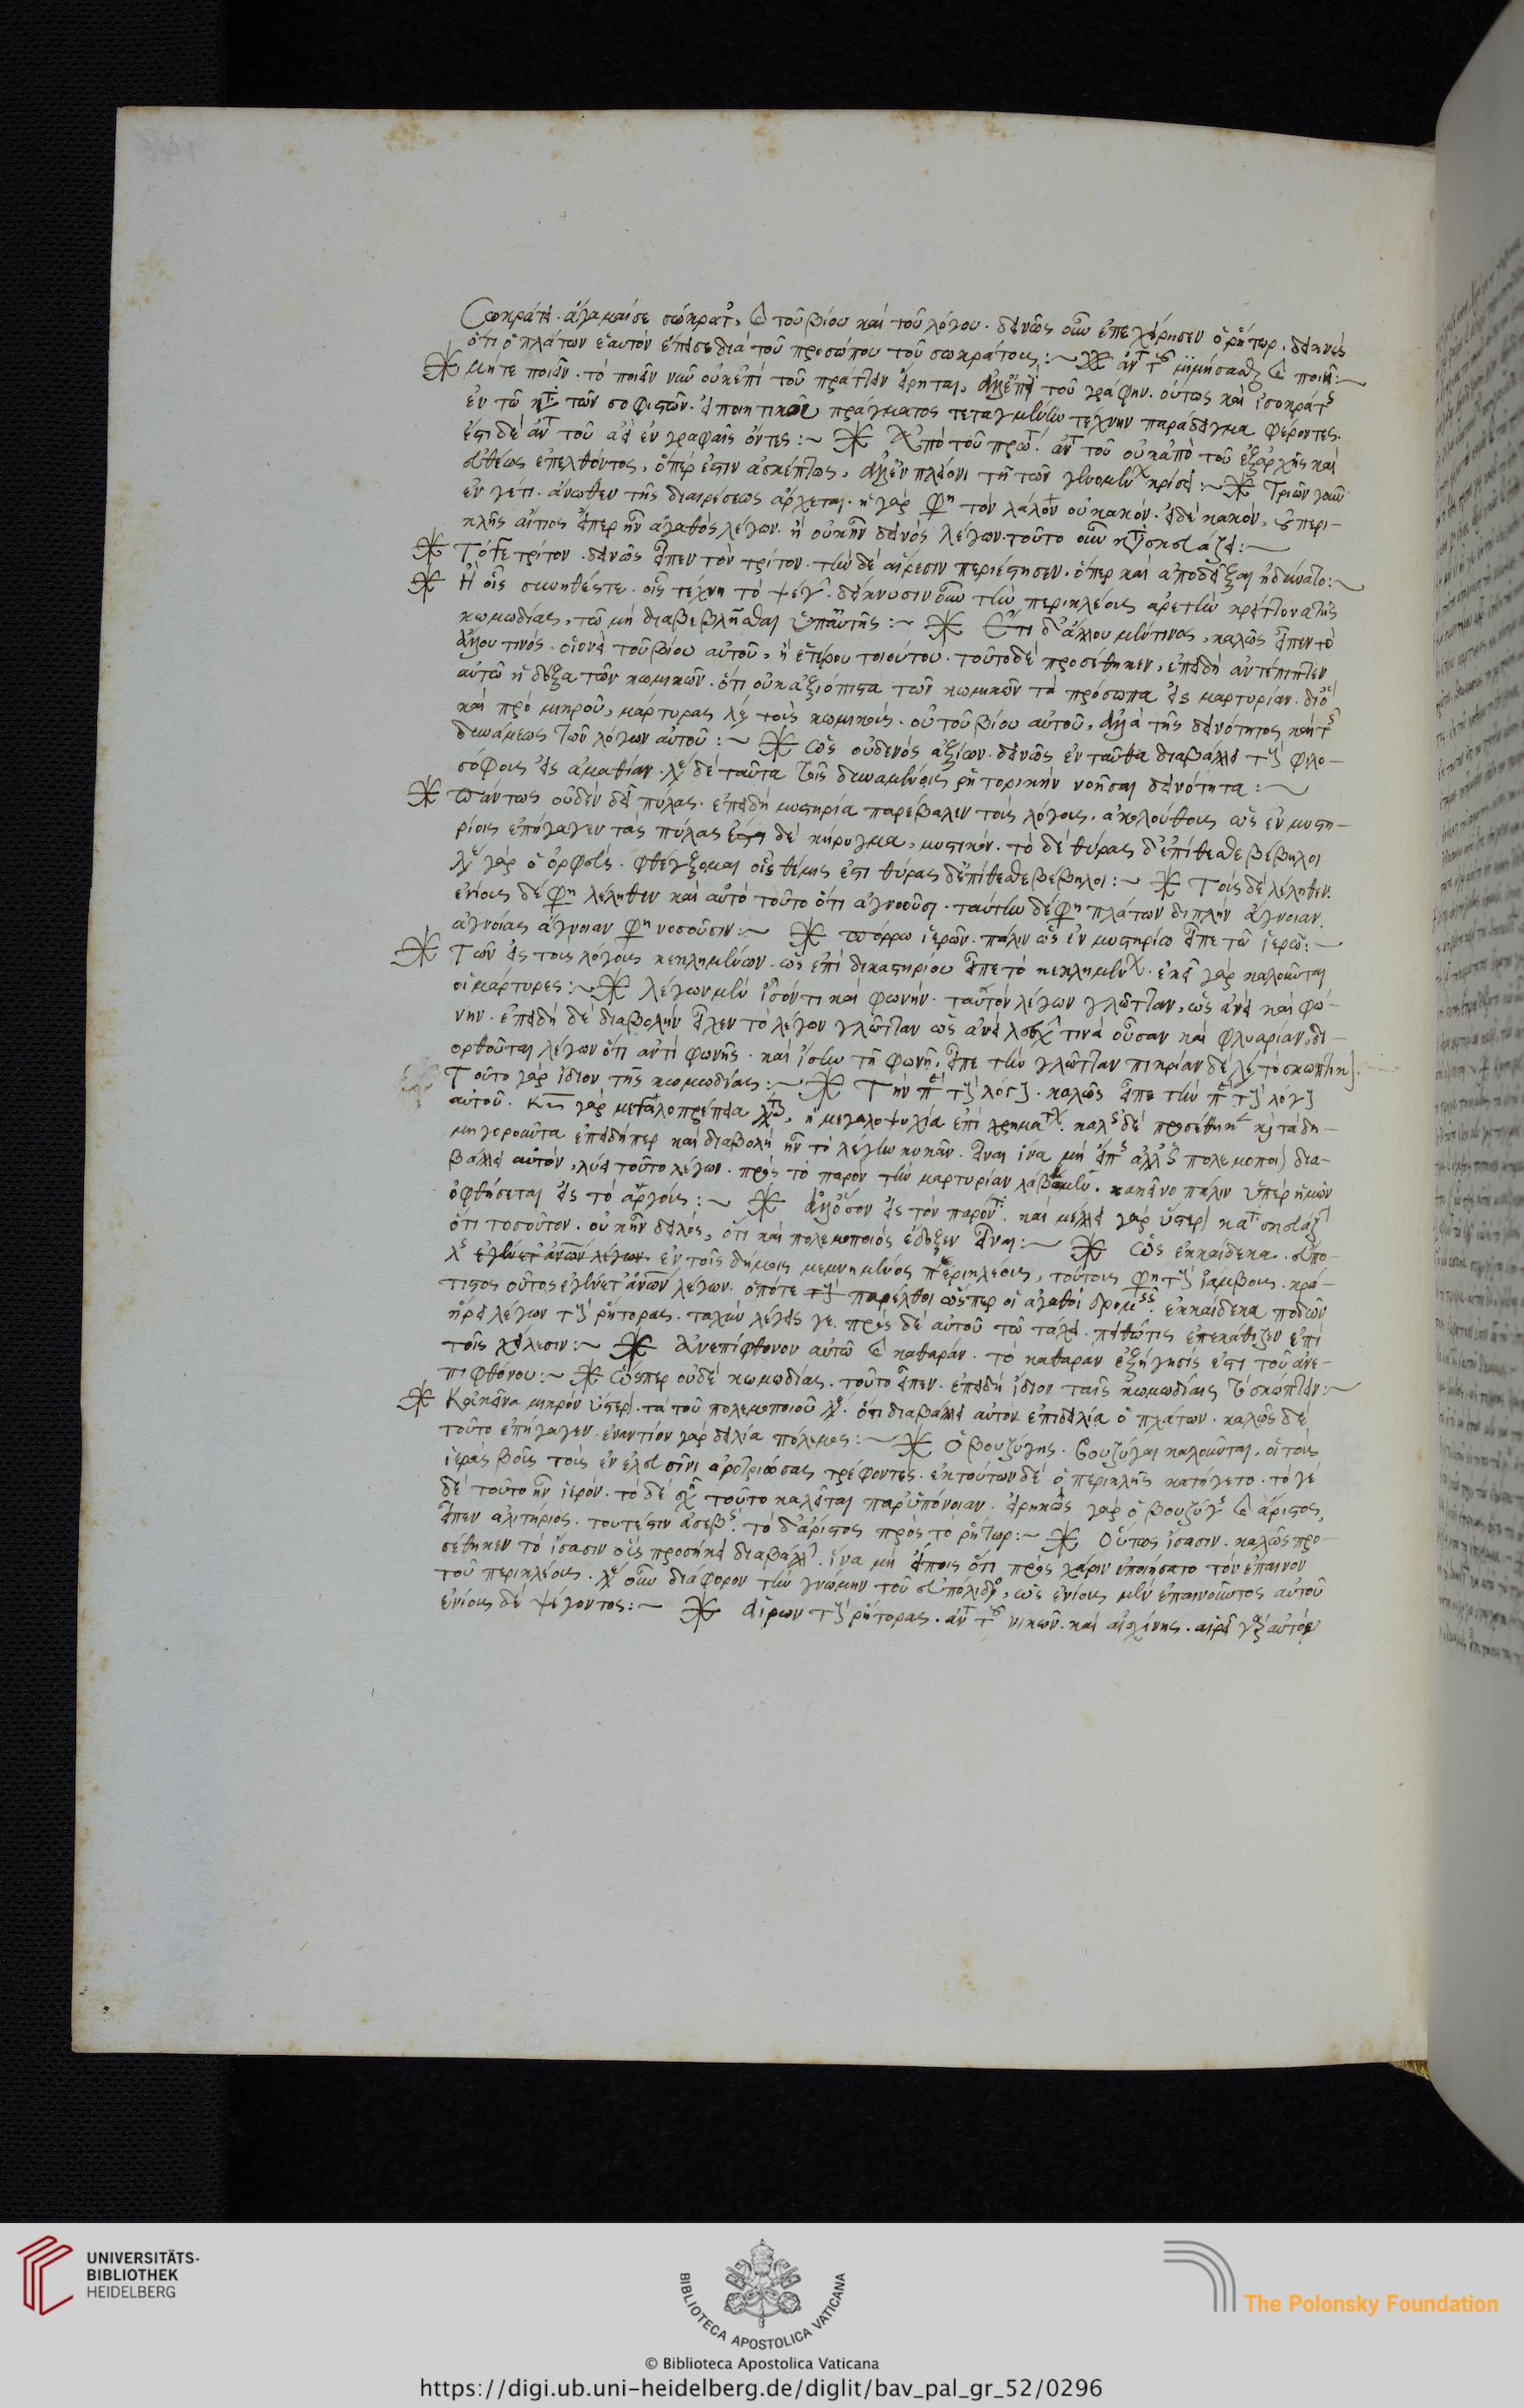 Σωκράτει. ἄγαμαί σε σώκρατες, καὶ τοῦ βίου καὶ τοῦ λόγου. δεινῶς οὖν ἐπεχείρησεν ὁ ῥήτωρ. δεικνὺς
ὅτι ὁ πλάτων ἑαυτὸν διὰ τοῦ προσώπου τοῦ σωκράτους:~ μιμήσασθαι καὶ ποιεῖν:~
μήτε ποιεῖν. τὸ ποιεῖν νῦν οὐκ ἐπὶ τοῦ πράττειν εἴρηται, ἀλλ' ἐπὶ τοῦ γράφειν. οὕτως καὶ ἰσοκράτης
ἐν τῷ κατὰ τῶν σοφιστῶν. ποιητικοῦ πράγματος τεταγμένην τέχνην παράδειγμα φέροντες.
ἔτι δὲ ἀντὶ τοῦ ἀεὶ ἐν γραφαῖς ὄντες:~ Ἀπὸ τοῦ πρώτου. ἀντὶ τοῦ οὐκ ἀπὸ τοῦ ἐξαρχῆς καὶ
εὐθέως ἐπελθόντος, ὅπερ ἐστὶν ἀσκέπτως, ἀλλ' ἐν πλείονι τῇ τῶν κρίσει:~ Τριῶν γοῦν
ἕν γέ τι. ἄνωθεν τῆς διαιρέσεως ἄρχεται. ἢ γάρ φησι τὸν λάλον οὐ κακόν. εἰ δὲ κακόν, ὁ περι-
κλῆς αἴτιος εἴπερ ἦν ἀγαθὸς λέγων. ἢ οὐκ ἦν δεινὸς λέγων. τοῦτο οὖν κατασκευάζει:~
Τό τε τρίτον. δεινῶς εἶπεν τὸν τρίτον. τὴν δὲ αἵρεσιν περιέστησεν. ὅπερ καὶ ἀποδεῖξαι ἠδύνατο:~
Ἢ οἷς σύνηθές τε. οἷς τέχνη τὸ ψέγειν. δείκνυσιν οὖν τὴν περικλέους ἀρετὴν κρείττονα τῆς
κωμωδίας, τῷ μὴ διαβεβλῆσθαι ὑπ' αὐτῆς:~ Ἔτι δ' ἄλλου μέν τινος, καλῶς εἶπεν τὸ
ἄλλου τινός. οἱονεὶ τοῦ βίου αὐτοῦ, ἢ ἑτέρου τοιούτου. τοῦτο δὲ προσέθηκεν, ἐπειδὴ ἀντέπιπτεν
αὐτῷ ἡ δόξα τῶν κωμικῶν. ὅτι οὐκ ἀξιόπιστα τῶν κωμικῶν τὰ πρόσωπα εἰς μαρτυρίαν. διὸ
καὶ πρὸ μικροῦ, μάρτυρας λέγει τοὺς κωμικούς. οὐ τοῦ βίου αὐτοῦ, ἀλλὰ τῆς δεινότητος καὶ τῆς
δυνάμεως τῶν λόγων αὐτοῦ:~ Ὡς οὐδενὸς ἀξίων. δεινῶς ἐνταῦθα διαβάλλει τοὺς φιλο-
σόφους εἰς ἀμαθίαν. λέγει δὲ ταῦτα τοῖς δυναμένοις ῥητορικὴν νοῆσαι δεινότητα:~
Πάντως οὐδὲν δεῖ πύλας. ἐπειδὴ μυστηρία παρέβαλεν τοῖς λόγοις. ἀκολούθως ὡς ἐν μυστη-
ρίοις ἐπήγαγεν τὰς πύλας ἔστι δὲ κήρυγμα, μυστικόν. τὸ δὲ θύρας δ' ἐπίθεσθε βέβηλοι
λέγει γὰρ ὁ ὀρφεύς. φθέγξομαι οἷς θέμις ἐστὶ θύρας δ' ἐπίθεσθε βέβηλοι:~ Τοὺς δὲ λέληθεν.
ἐνίους δέ φησι λέληθεν καὶ αὐτὸ τοῦτο ὅτι ἀγνοοῦσι. ταύτην δέ φησι πλάτων διπλῆν ἄγνοιαν.
ἀγνοίας ἄγνοιαν φησι νοσοῦσιν:~ Πόρρω ἱερῶν. πάλιν ὡς ἐν μυστηρίῳ εἶπε τῷ ἱερῷ:~
Τῶν εἰς τοὺς λόγους κεκλημένων. ὡς ἐπὶ δικαστηρίου εἶπε τὸ κεκλημένων. ἐκεῖ γὰρ καλοῦνται
οἱ μάρτυρες:~ Λέγων μὲν ἴσόν τι καὶ φωνήν. ταυτὸν λέγων γλῶτταν, ὡς ἀνεὶ καὶ φω-
νήν. ἐπειδὴ δὲ διαβολὴν εἶχεν τὸ λέγον γλῶτταν ὡς ἀνεὶ τινὰ οὖσαν καὶ φλυαρίαν, δι-
ορθοῦται λέγων ὅτι ἀντὶ φωνῆς. καὶ ἴσην τῇ φωνῇ, εἶπε τὴν γλῶτταν πικρίαν δὲ λέγει τὸ σκωπτικόν.
Τοῦτο γὰρ ἴδιον τῆς κωμωδίας:~ Τὴν περὶ τοὺς λόγους. καλῶς εἶπε τὴν περὶ τοὺς λόγους
αὐτοῦ. γὰρ μεγαλοπρέπεια λέγεται, ἡ μεγαλοψυχία ἐπὶ χρημάτων. καλῶς δὲ προσέθηκε κατὰ δη-
μηγοροῦντα ἐπειδήπερ καὶ διαβολὴ ἦν τὸ λέγειν κυκᾶν. εἶναι ἵνα μὴ εἴπῃς ἀλλ' ὡς πολεμοποιὸν δια-
βάλλει αὐτόν, λύει τοῦτο λέγων. πρὸς τὸ παρὸν τὴν μαρτυρίαν λάβωμεν. κακεῖνο πάλιν ὑπὲρ ἡμῶν
ὀφθήσεται εἰς τὸ ἀργούς:~ ἀλλ' ὅσον εἰς τὸν παρόντα. καὶ μέλλει γὰρ ὕστερον κατασκευάζειν
ὅτι τοσοῦτον. οὐκ ἦν δειλός, ὅτι καὶ πολεμοποιὸς ἔδοξεν εἶναι:~ Ὡς ἑκκαίδεκα. εὔπο-
λις ἐν τοῖς δήμοις μεμνημένος περικλέους, τούτοις φησὶ τοὺς ἰάμβους. κρά-
τιστος οὗτος ἐγένετ' ἀνθρώπων λέγων. ὁπότε παρέλθοι ὥσπερ οἱ ἀγαθοὶ δρομεῖς. ἑκκαίδεκα ποδῶν
ᾕρει λέγων τοὺς ῥήτορας. ταχὺν λέγεις γε. πρὸς δὲ αὐτοῦ τῷ τάχει. πειθώ τις ἐπεκάθιζεν ἐπὶ
τοῖς χείλεσιν:~ Ἀνεπίφθονον αὐτῷ καὶ καθαράν. τὸ καθαρὰν ἐξήγησίς ἐστι τοῦ ἀνε-
πιφθόνου:~ Ὥσπερ οὐδὲ κωμωδίας. τοῦτο εἶπεν. ἐπειδὴ ἴδιον ταῖς κωμωδίαις τὸ σκώπτειν:~
Κἀκεῖνα μικρὸν ὕστερον. τὰ τοῦ πολεμοποιοῦ λέγει. ὅτι διαβάλλει αὐτὸν ἐπὶ δειλίᾳ ὁ πλάτων. καλῶς δὲ
τοῦτο ἐπήγαγεν. ἐναντίον γὰρ δειλία πόλεμος:~ Ὁ βουζύγης. βουζύγαι καλοῦνται, οἱ τὰς
ἱερὰς βοῦς τὰς ἐν ἐλευσῖνι ἀροτριώσας τρέφοντες. ἐκ τούτων δὲ ὁ περικλῆς κατήγετο. τὸ γέ-
δὲ τοῦτο ἦν ἱερόν. τὸ δὲ σχῆμα τοῦτο καλεῖται παρ' ὑπόνοιαν. εἰρηκὼς γὰρ ὁ βουζύγης καὶ ἄριστος,
εἶπεν ἀλιτήριος. τουτέστιν ἀσεβής. τὸ δ' ἄριστος πρὸς τὸ ῥήτωρ:~ Οὕτως ἴσασιν. καλῶς προ-
σέθηκεν τὸ ἴσασιν οὓς προσήκει διαβάλλειν. ἵνα μὴ εἴποις ὅτι πρὸς χάριν ἐποιήσατο τὸν ἔπαινον
τοῦ περικλέους. λέγει οὖν διάφορον τὴν γνώμην τοῦ εὐπόλιδος, ὡς ἐνίους μὲν ἐπαινοῦντος αὐτοῦ
ἐνίους δὲ ψέγοντος:~ Αἱρῶν τοὺς ῥήτορας. ἀντὶ τοῦ νικῶν. καὶ αἰσχίνης. αἱρεῖ
UNIVERSITÄTS-
BIBLIOTHEK
HEIDELBERG
BIBLIOTECA APOSTOLICA VATICANA
The Polonsky Foundation
© Biblioteca Apostolica Vaticana
https://digi.ub.uni-heidelberg.de/diglit/bav_pal_gr_52/0296